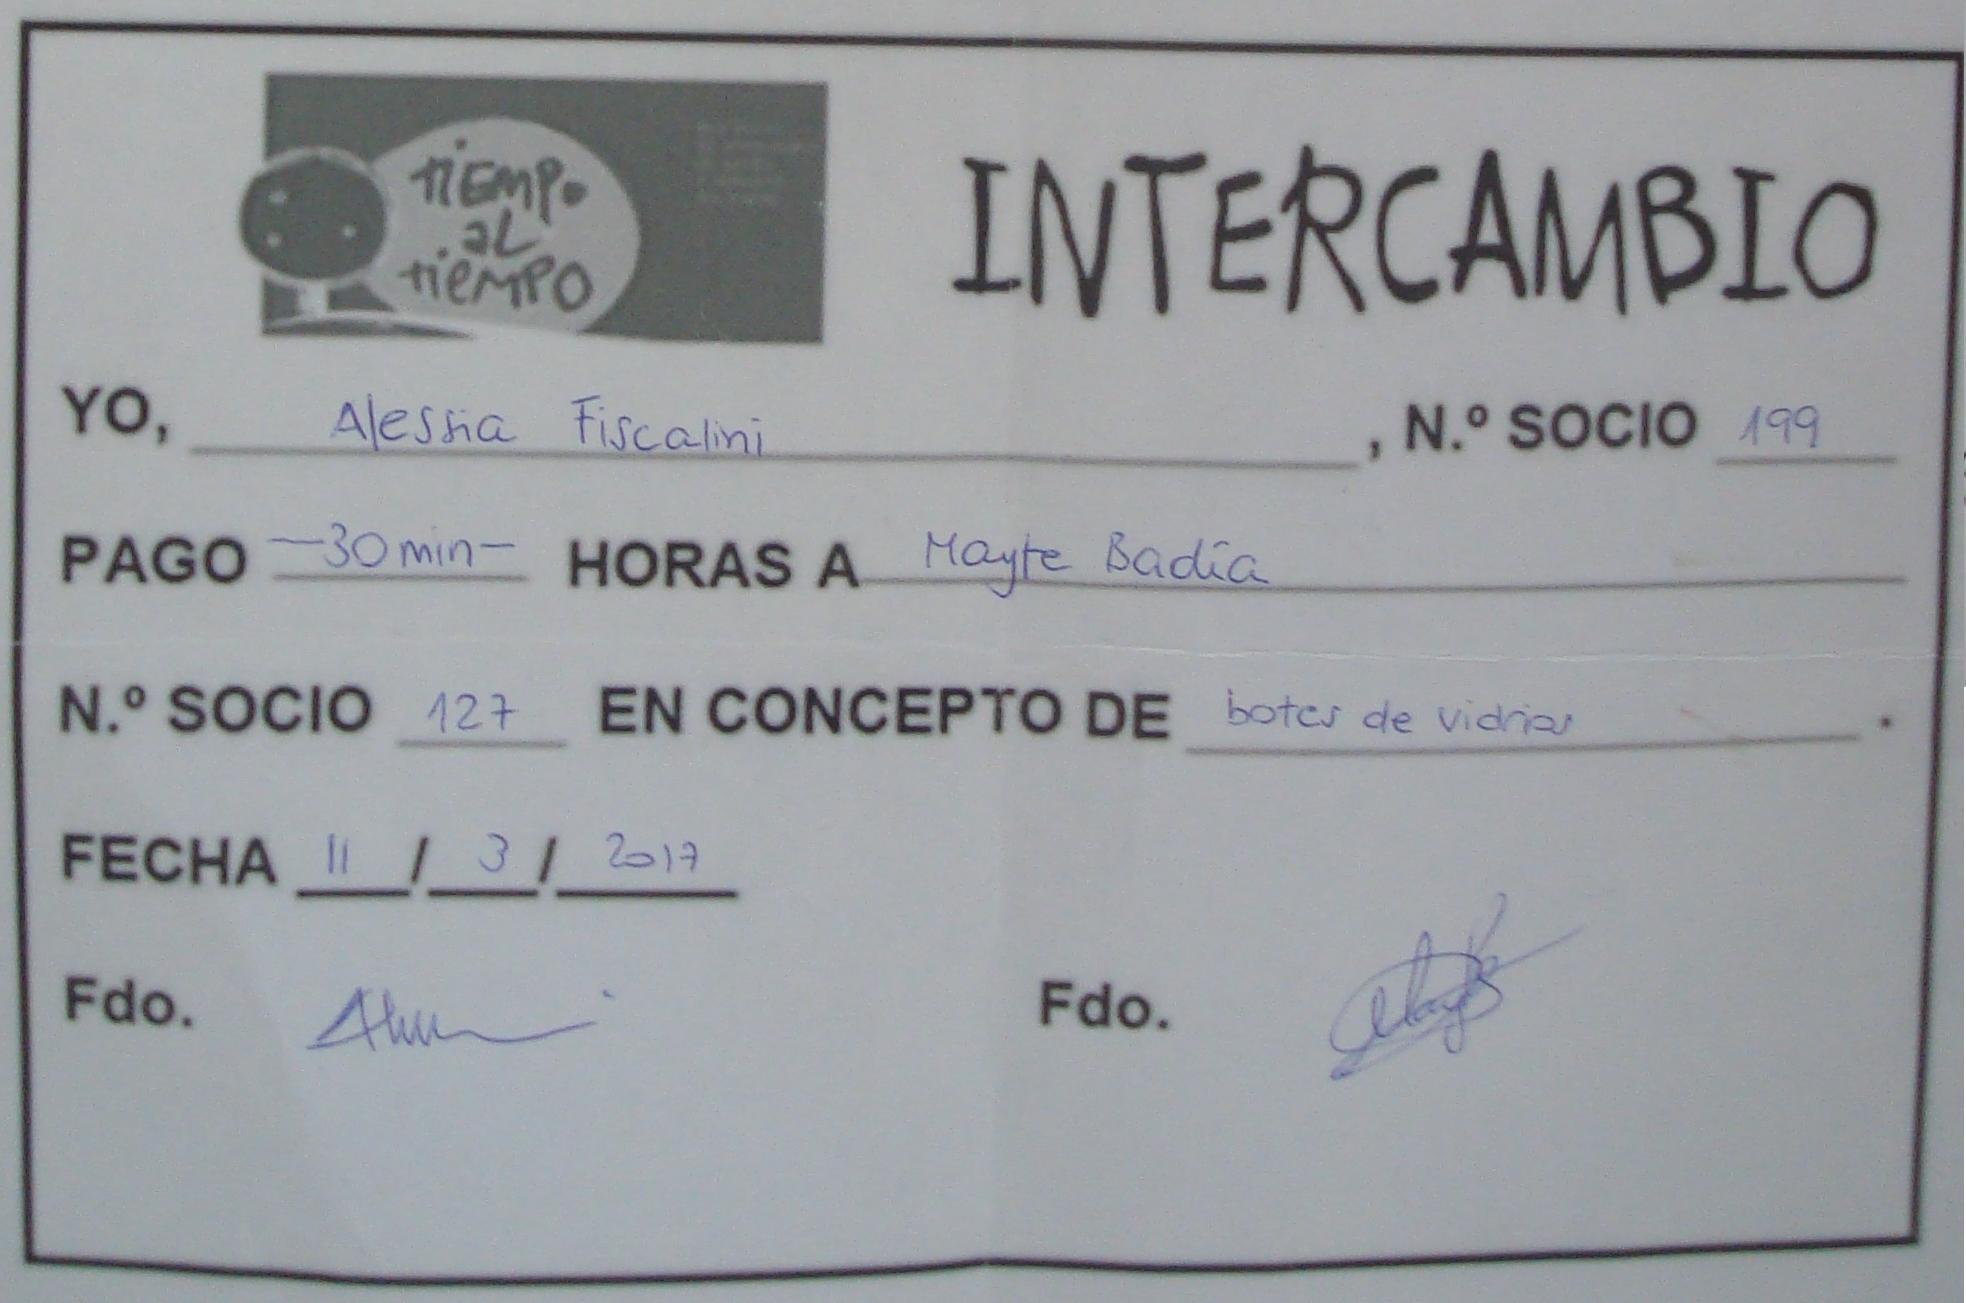 TIEMPO
AL
TIEMPO
INTERCAMBIO
YO, Alessia Fiscalini, N.º SOCIO 199
PAGO —30 min— HORAS A Mayte Badía
N.º SOCIO 127 EN CONCEPTO DE botes de vidrios.
FECHA 11 / 3 / 2017
Fdo. Fdo.